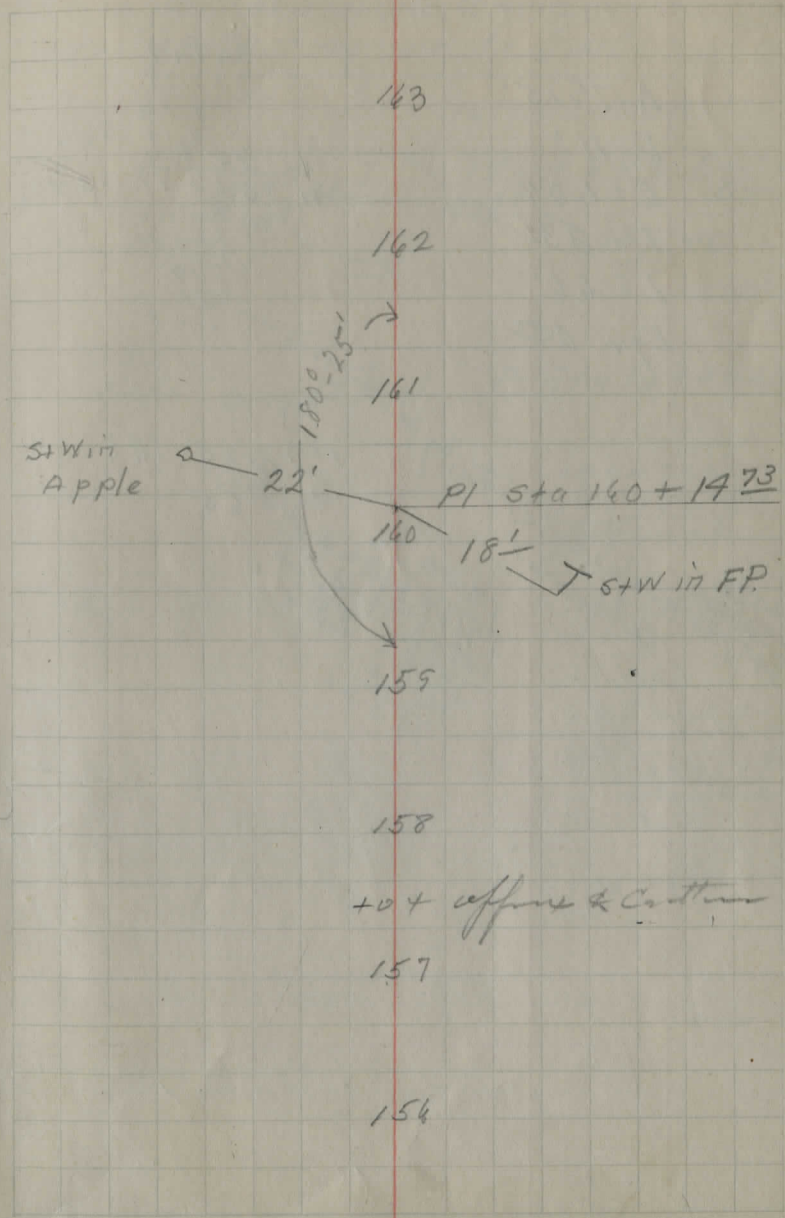 163
162
180°-25'
161
S+W in
Apple
22'
PI Sta 160 + 14 73
160
18'
S+W in F.P.
159
158
157
156